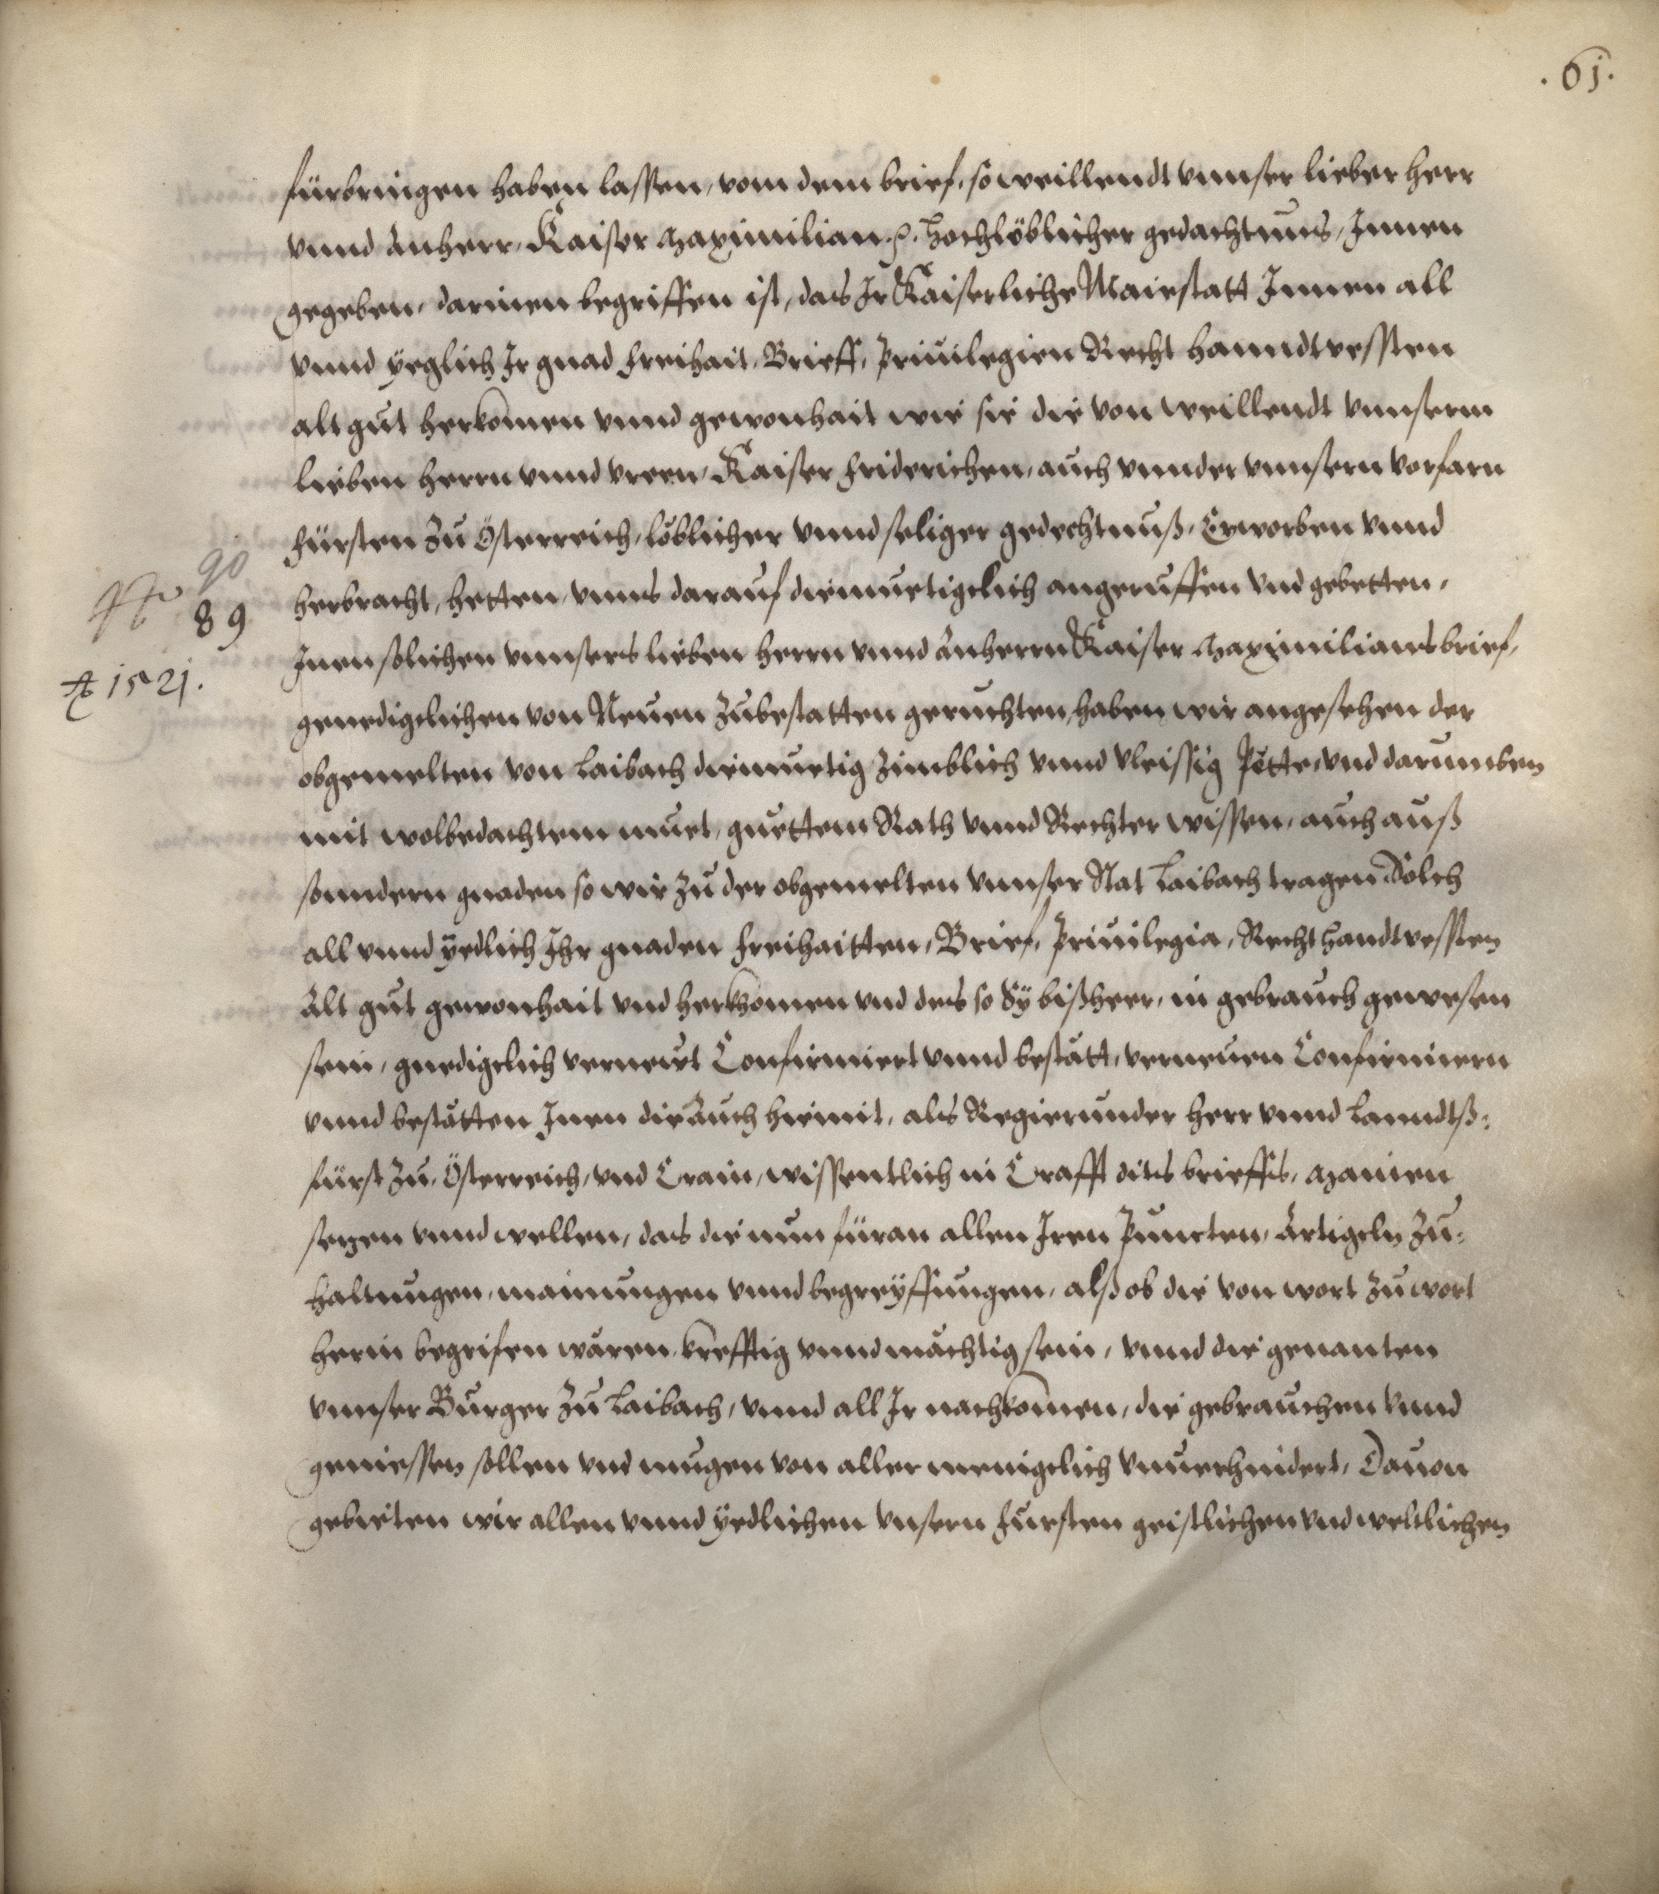 .61.
fürbringen haben lassen, vom dem brief, so weillendt vnnser lieber herr
vnnd Anherr, Kaiser Maximilian .p. hochlöblicher gedachtnus, Innen
gegeben, darinen begriffen ist, das Ir Kaiserliche Maiestatt Innen all
vnnd yeglich Ir gnad freihait, Brieff, Priuilegien Recht hanndtvessten
alt gut herkomen vnnd gewonhait wie sie die von weillendt vnnserm
lieben herrn vnnd vreen, Kaiser friderichen, auch vnnder vnnsern vorfarn
fürsten Zu Österreich, löblicher vnnd seliger gedechtnuß, Erworben vnnd
herbracht, hetten, vnns darauf diemuetigclich angeruffen vnd gebetten,
Inen solichen vnnsers lieben herrn vnnd Anherrn Kaiser Maximilians brief,
genedigclichen von Neuen Zubestatten geruchten, haben wir angesehen der
obgemelten von Laibach diemuetig Zimblich vnnd vleissig Pette, vnd darumben
mit wolbedachtem muet, guettem Rath vnnd Rechter wissen, auch auß
sonndern gnaden so wir Zu der obgemelten vnnser Stat Laibach tragen Solch
all vnnd yedlich Ihr gnaden freihaitten, Brief, Priuilegia, Recht handtvessten
Alt gut gewonhait vnd herkhomen vnd des so Sy bißheer, in gebrauch gewesen
sein, gnedigclich verneurt Confirmiert vnnd bestätt, verneuen Confirmiern
vnnd bestätten Inen die Auch hiemit, als Regierunder herr vnnd Lanndtß-
fürst Zu, Österreich, vnd Crain, wissentlich in Crafft dits brieffs, Mainen
sezen vnnd wellen, das die nun füran allen Iren Puncten, Artigeln Zu-
haltungen, mainungen vnnd begreyffungen, alß ob die von wort Zu wort
herin begrifen wären, krefftig vnnd mächtig sein, vnnd die genanten
vnnser Burger Zu Laibach, vnnd all Ir nachkomen, die gebrauchen vnnd
geniessen sollen vnd mugen von aller menigclich vnuerhindert, Dauon
gebieten wir allen vnnd yedlichen vnsern fürsten geistlichen vnd weltlichen
90
No 89
Ao 1521.